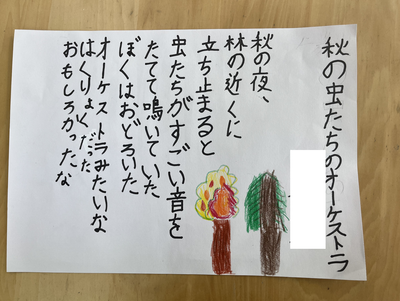 秋の虫たちのオーケストラ
秋の夜、
林の近くに
立ち止まると
虫たちがすごい音を
たてて鳴いていた
ぼくはおどろいた
オーケストラみたいな
はくりょくだった
おもしろかったな